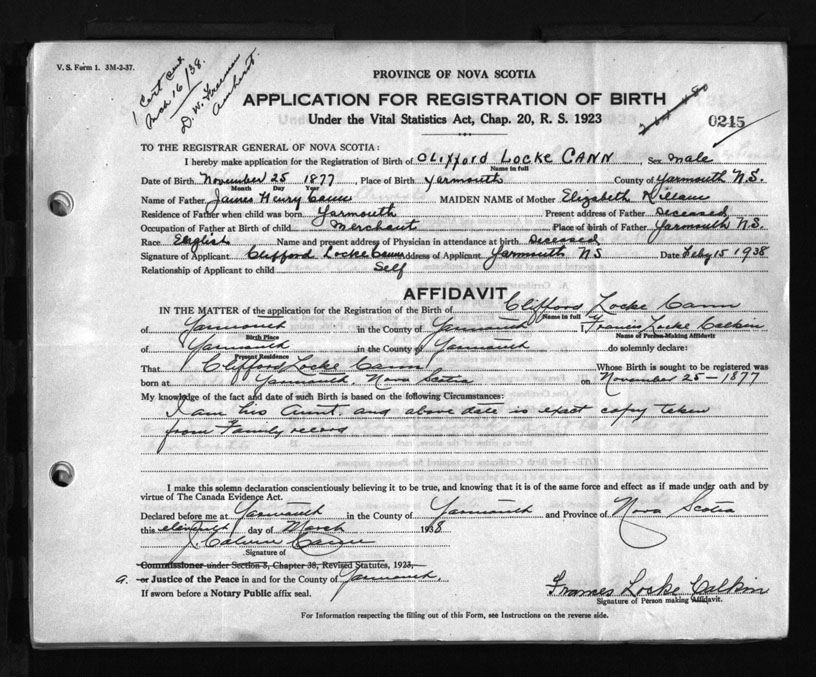 V. S. Form 1. 3M-2-37.
1 Cert sent
Mch 16/38.
D. W. Freeman
Amherst.
PROVINCE OF NOVA SCOTIA
APPLICATION FOR REGISTRATION OF BIRTH
Under the Vital Statistics Act, Chap. 20, R. S. 1923
0245
TO THE REGISTRAR GENERAL OF NOVA SCOTIA:
I hereby make application for the Registration of Birth of Clifford Locke Cann, Sex Male
Name in full
Date of Birth November 25 1877, Place of Birth Yarmouth County of Yarmouth N.S.
Month Day Year
Name of Father James Henry Cann MAIDEN NAME of Mother Elizabeth Killam
Residence of Father when child was born Yarmouth Present address of Father Deceased
Occupation of Father at Birth of child Merchant Place of birth of Father Yarmouth N.S.
Race English Name and present address of Physician in attendance at birth Deceased
Signature of Applicant Clifford Locke Cann Address of Applicant Yarmouth NS Date Feby 15 1938
Relationship of Applicant to child Self
AFFIDAVIT
IN THE MATTER of the application for the Registration of the Birth of Clifford Locke Cann
Name in full
of Yarmouth in the County of Yarmouth Francis Locke Calkin
Birth Place Name of Person Making Affidavit
of Yarmouth in the County of Yarmouth do solemnly declare:
Present Residence
That Clifford Locke Cann Whose Birth is sought to be registered was
born at Yarmouth, Nova Scotia on November 25-1877
My knowledge of the fact and date of such Birth is based on the following Circumstances:
I am his Aunt. and above date is exact copy taken
from Family record
I make this solemn declaration conscientiously believing it to be true, and knowing that it is of the same force and effect as if made under oath and by
virtue of The Canada Evidence Act.
Declared before me at Yarmouth in the County of Yarmouth and Province of Nova Scotia
this eleventh day of March 1938
J. Calvin Cann
Signature of
Commissioner under Section 8, Chapter 38, Revised Statutes, 1923,
a. or Justice of the Peace in and for the County of Yarmouth.
If sworn before a Notary Public affix seal.
Frances Locke Calkin
Signature of Person making Affidavit.
For Information respecting the filling out of this Form, see Instructions on the reverse side.